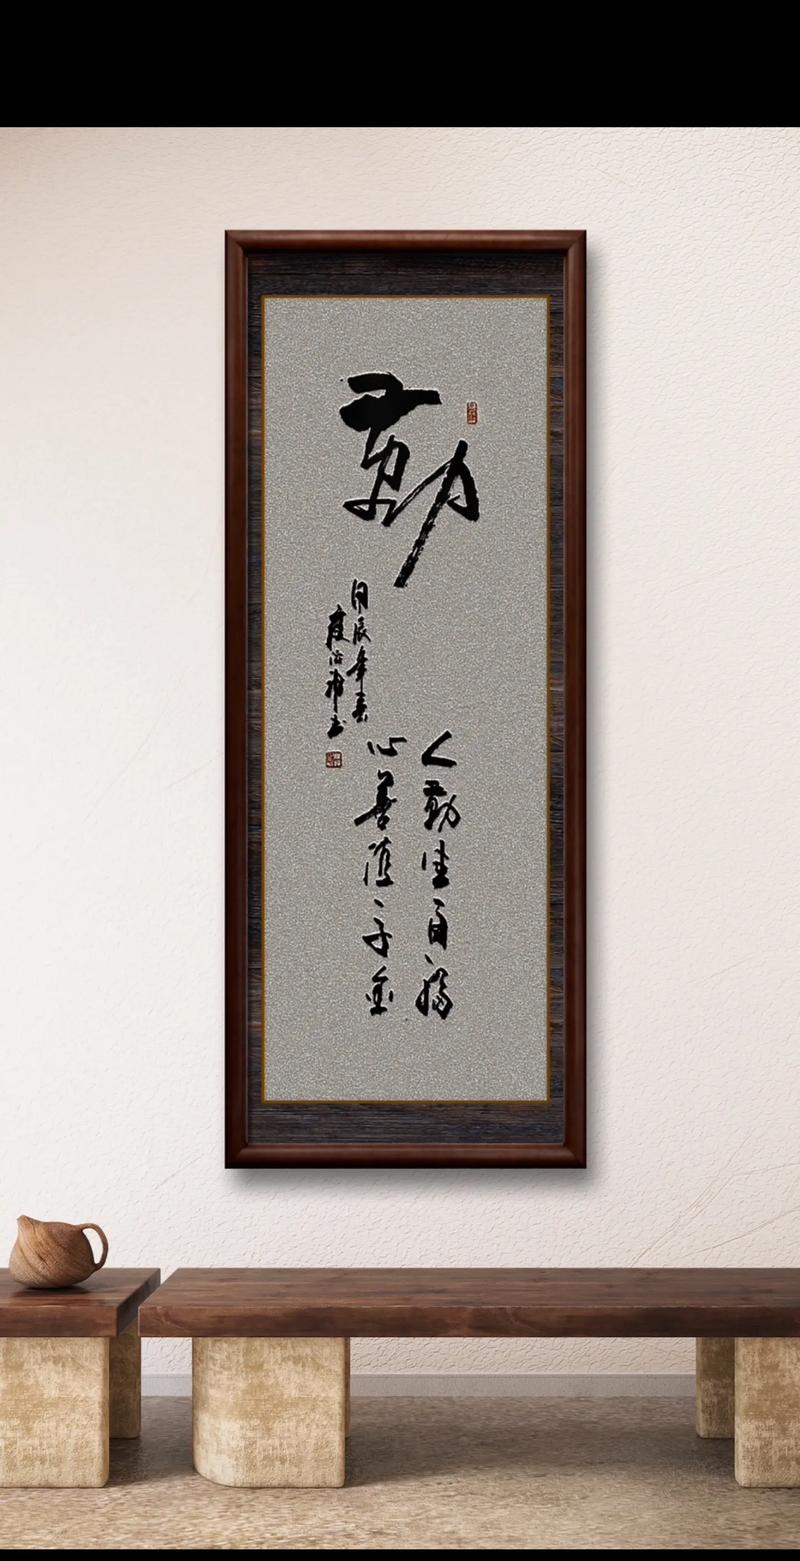 勤
人勤生百福
心善值千金
甲辰年春